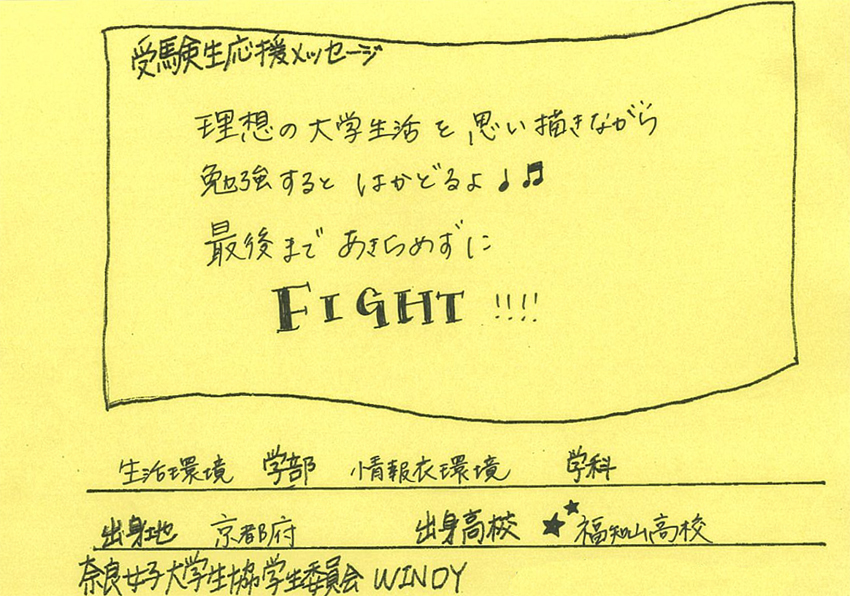 受験生応援メッセージ
理想の大学生活を思い描きながら
勉強するとはかどるよ♩♫
最後まであきらめずに
FIGHT !!!!
生活環境 学部 情報衣環境 学科
出身地 京都府 出身高校 ★★福知山高校
奈良女子大学生協学生委員会 WINDY